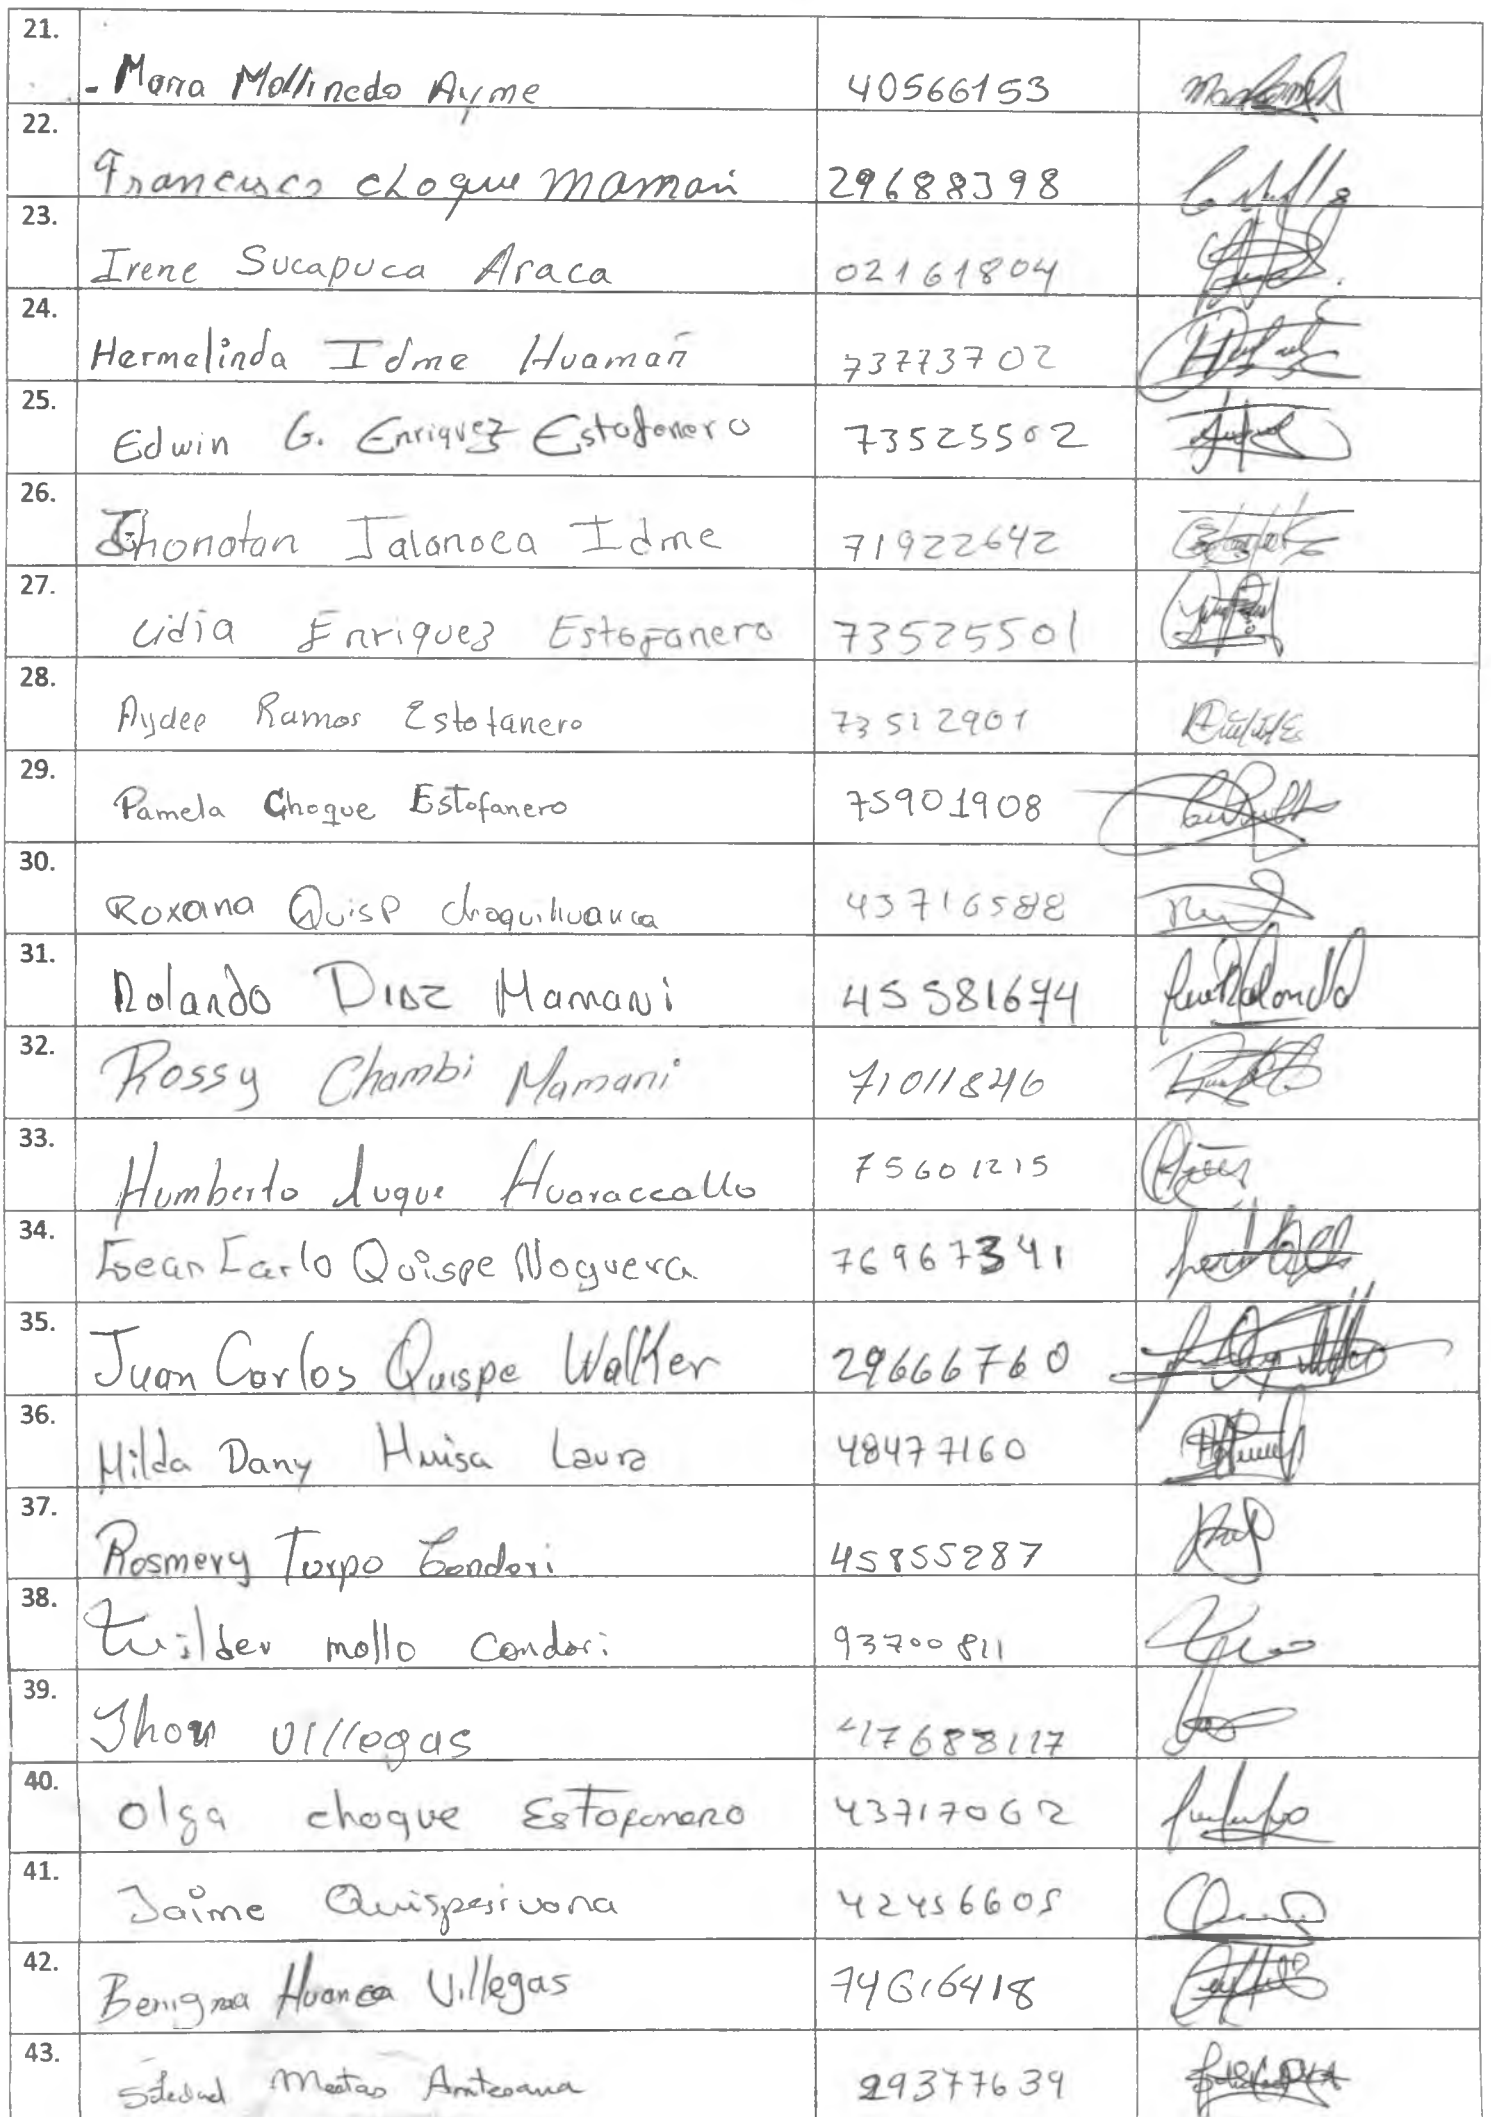 21. - Maria Mollinedo Ayme 40566153
22. Francisco choque Mamani 29688398
23. Irene Sucapuca Araca 02161804
24. Hermelinda Idme Huamañ 73773702
25. Edwin G. Enriquez Estofanero 73525502
26. Jhonatan Jalanoca Idme 71922642
27. Lidia Enriquez Estofanero 73525501
28. Aydee Ramos Estofanero 73512901
29. Pamela Choque Estofanero 75901908
30. Roxana Quisp choquihuanca 43716588
31. Rolando Diaz Mamani 45581674
32. Rossy Chambi Mamani 71011846
33. Humberto Luque Huaraccallo 75601215
34. Jean Carlo Quispe Noguera 76967341
35. Juan Carlos Quispe Walker 29666760
36. Hilda Dany Huisa Laura 48477160
37. Rosmery Turpo Condori 45855287
38. Wilder mollo Condori 93700811
39. Jhon Villegas 47688117
40. Olga choque Estofanero 43717062
41. Jaime Quispesivana 42456605
42. Benigna Huanca Villegas 74616418
43. Soledad 29377639